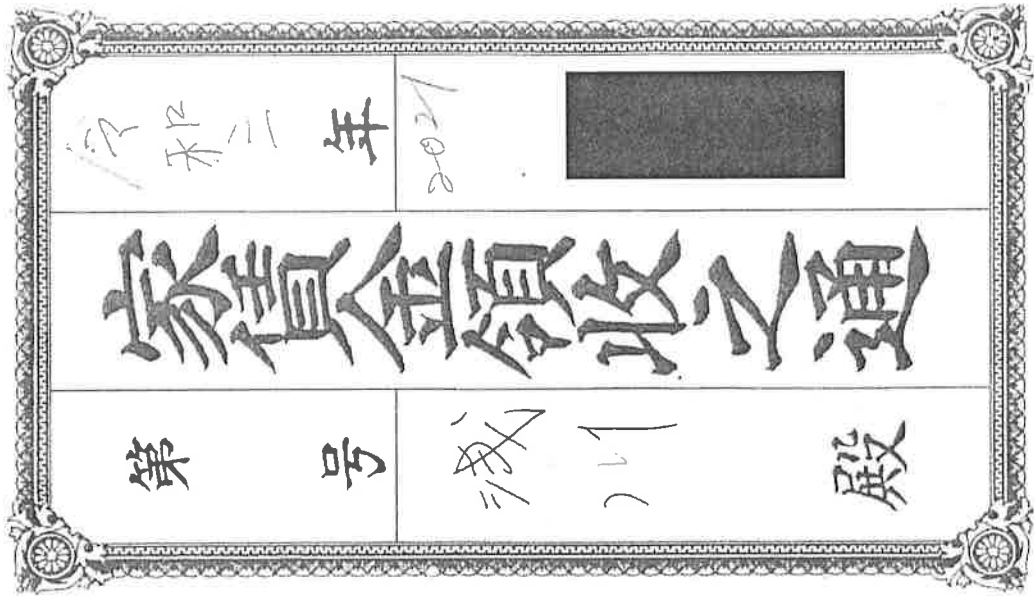 令和三年 2021
家賃金領収之通
第 号 浅川 殿